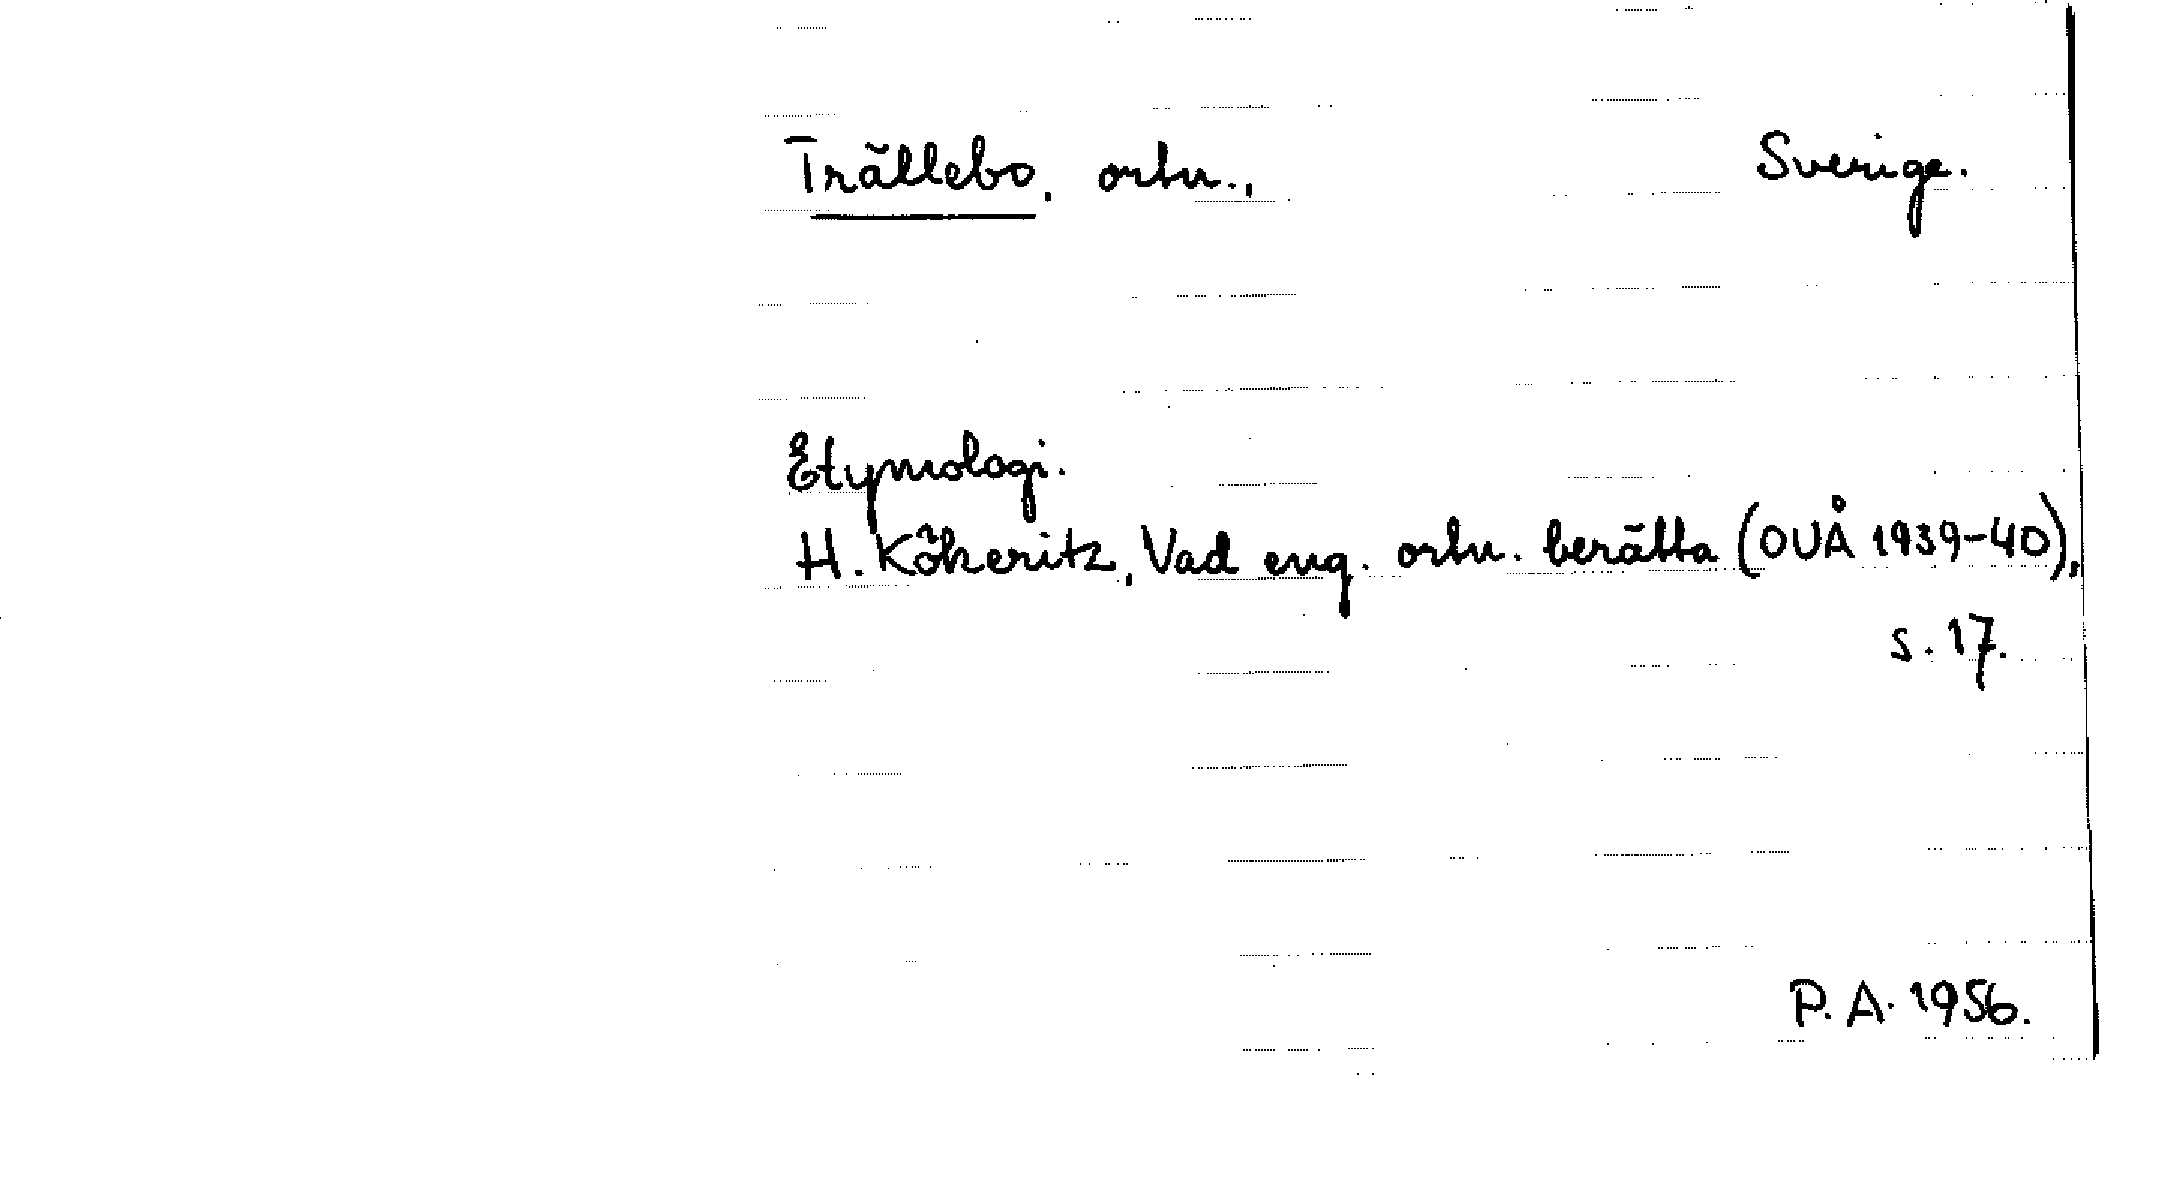 Trällebo, ortn., Sverige.
Etymologi.
H. Kökeritz, Vad eng. ortn. berätta (OUÅ 1939-40),
s. 17.
P.A. 1956.